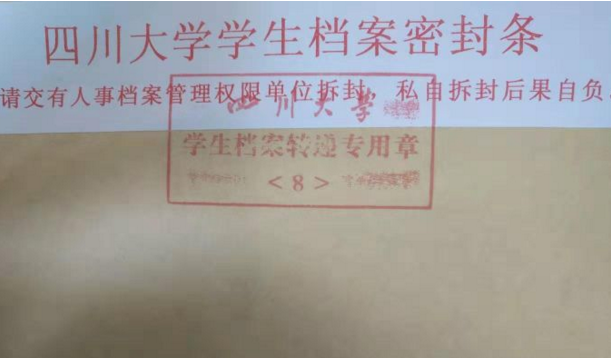 四川大学学生档案密封条
请交有人事档案管理权限单位拆封 私自拆封后果自负
四川大学
学生档案转递专用章
<8>